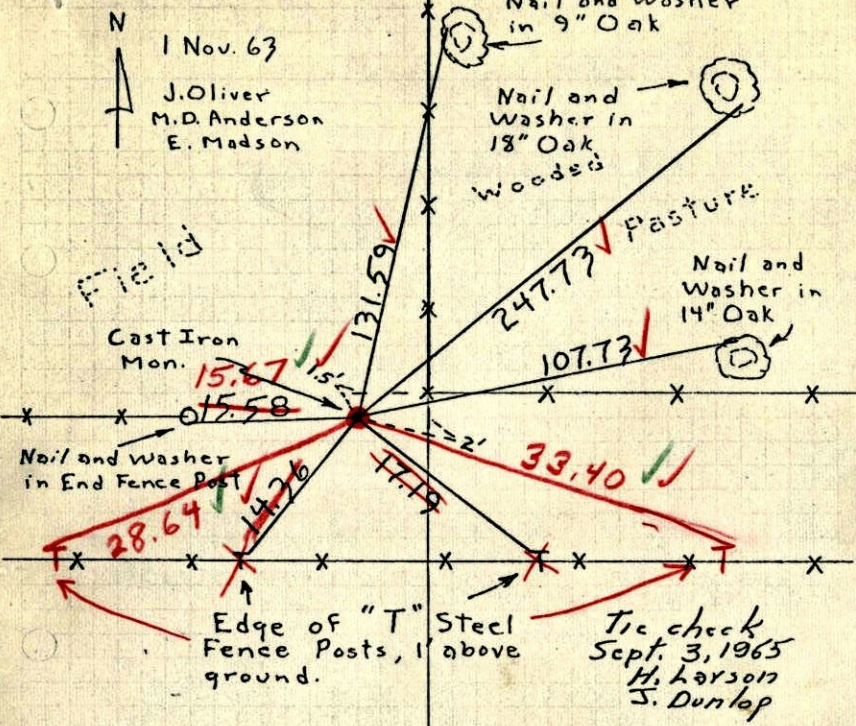 N
1 Nov. 63
J. Oliver
M.D. Anderson
E. Madson
Nail and Washer
in 9" Oak
Nail and
Washer in
18" Oak
Wooded
Pasture
Field
131.59
247.73
Nail and
Washer in
14" Oak
107.73
Cast Iron
Mon.
15.67
1.5'
15.58
2'
Nail and Washer
in End Fence Post
28.64
14.26
17.19
33.40
T
T
T
Edge of "T" Steel
Fence Posts, 1' above
ground.
Tie check
Sept. 3, 1965
H. Larson
J. Dunlop